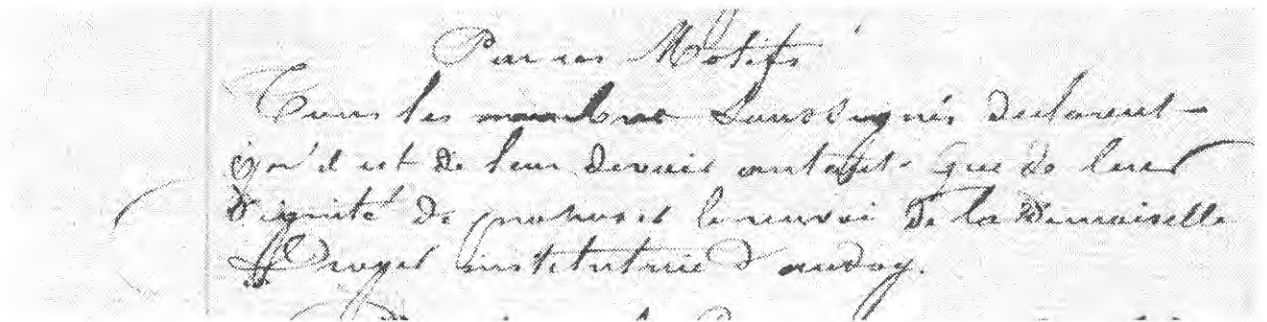 Par ces Motifs
Tous les membres Soussignés declarent
qu'il est de leur devoir autant que de leur
Dignité de proposer le renvoi de la Demoiselle
institutrice d'auday.